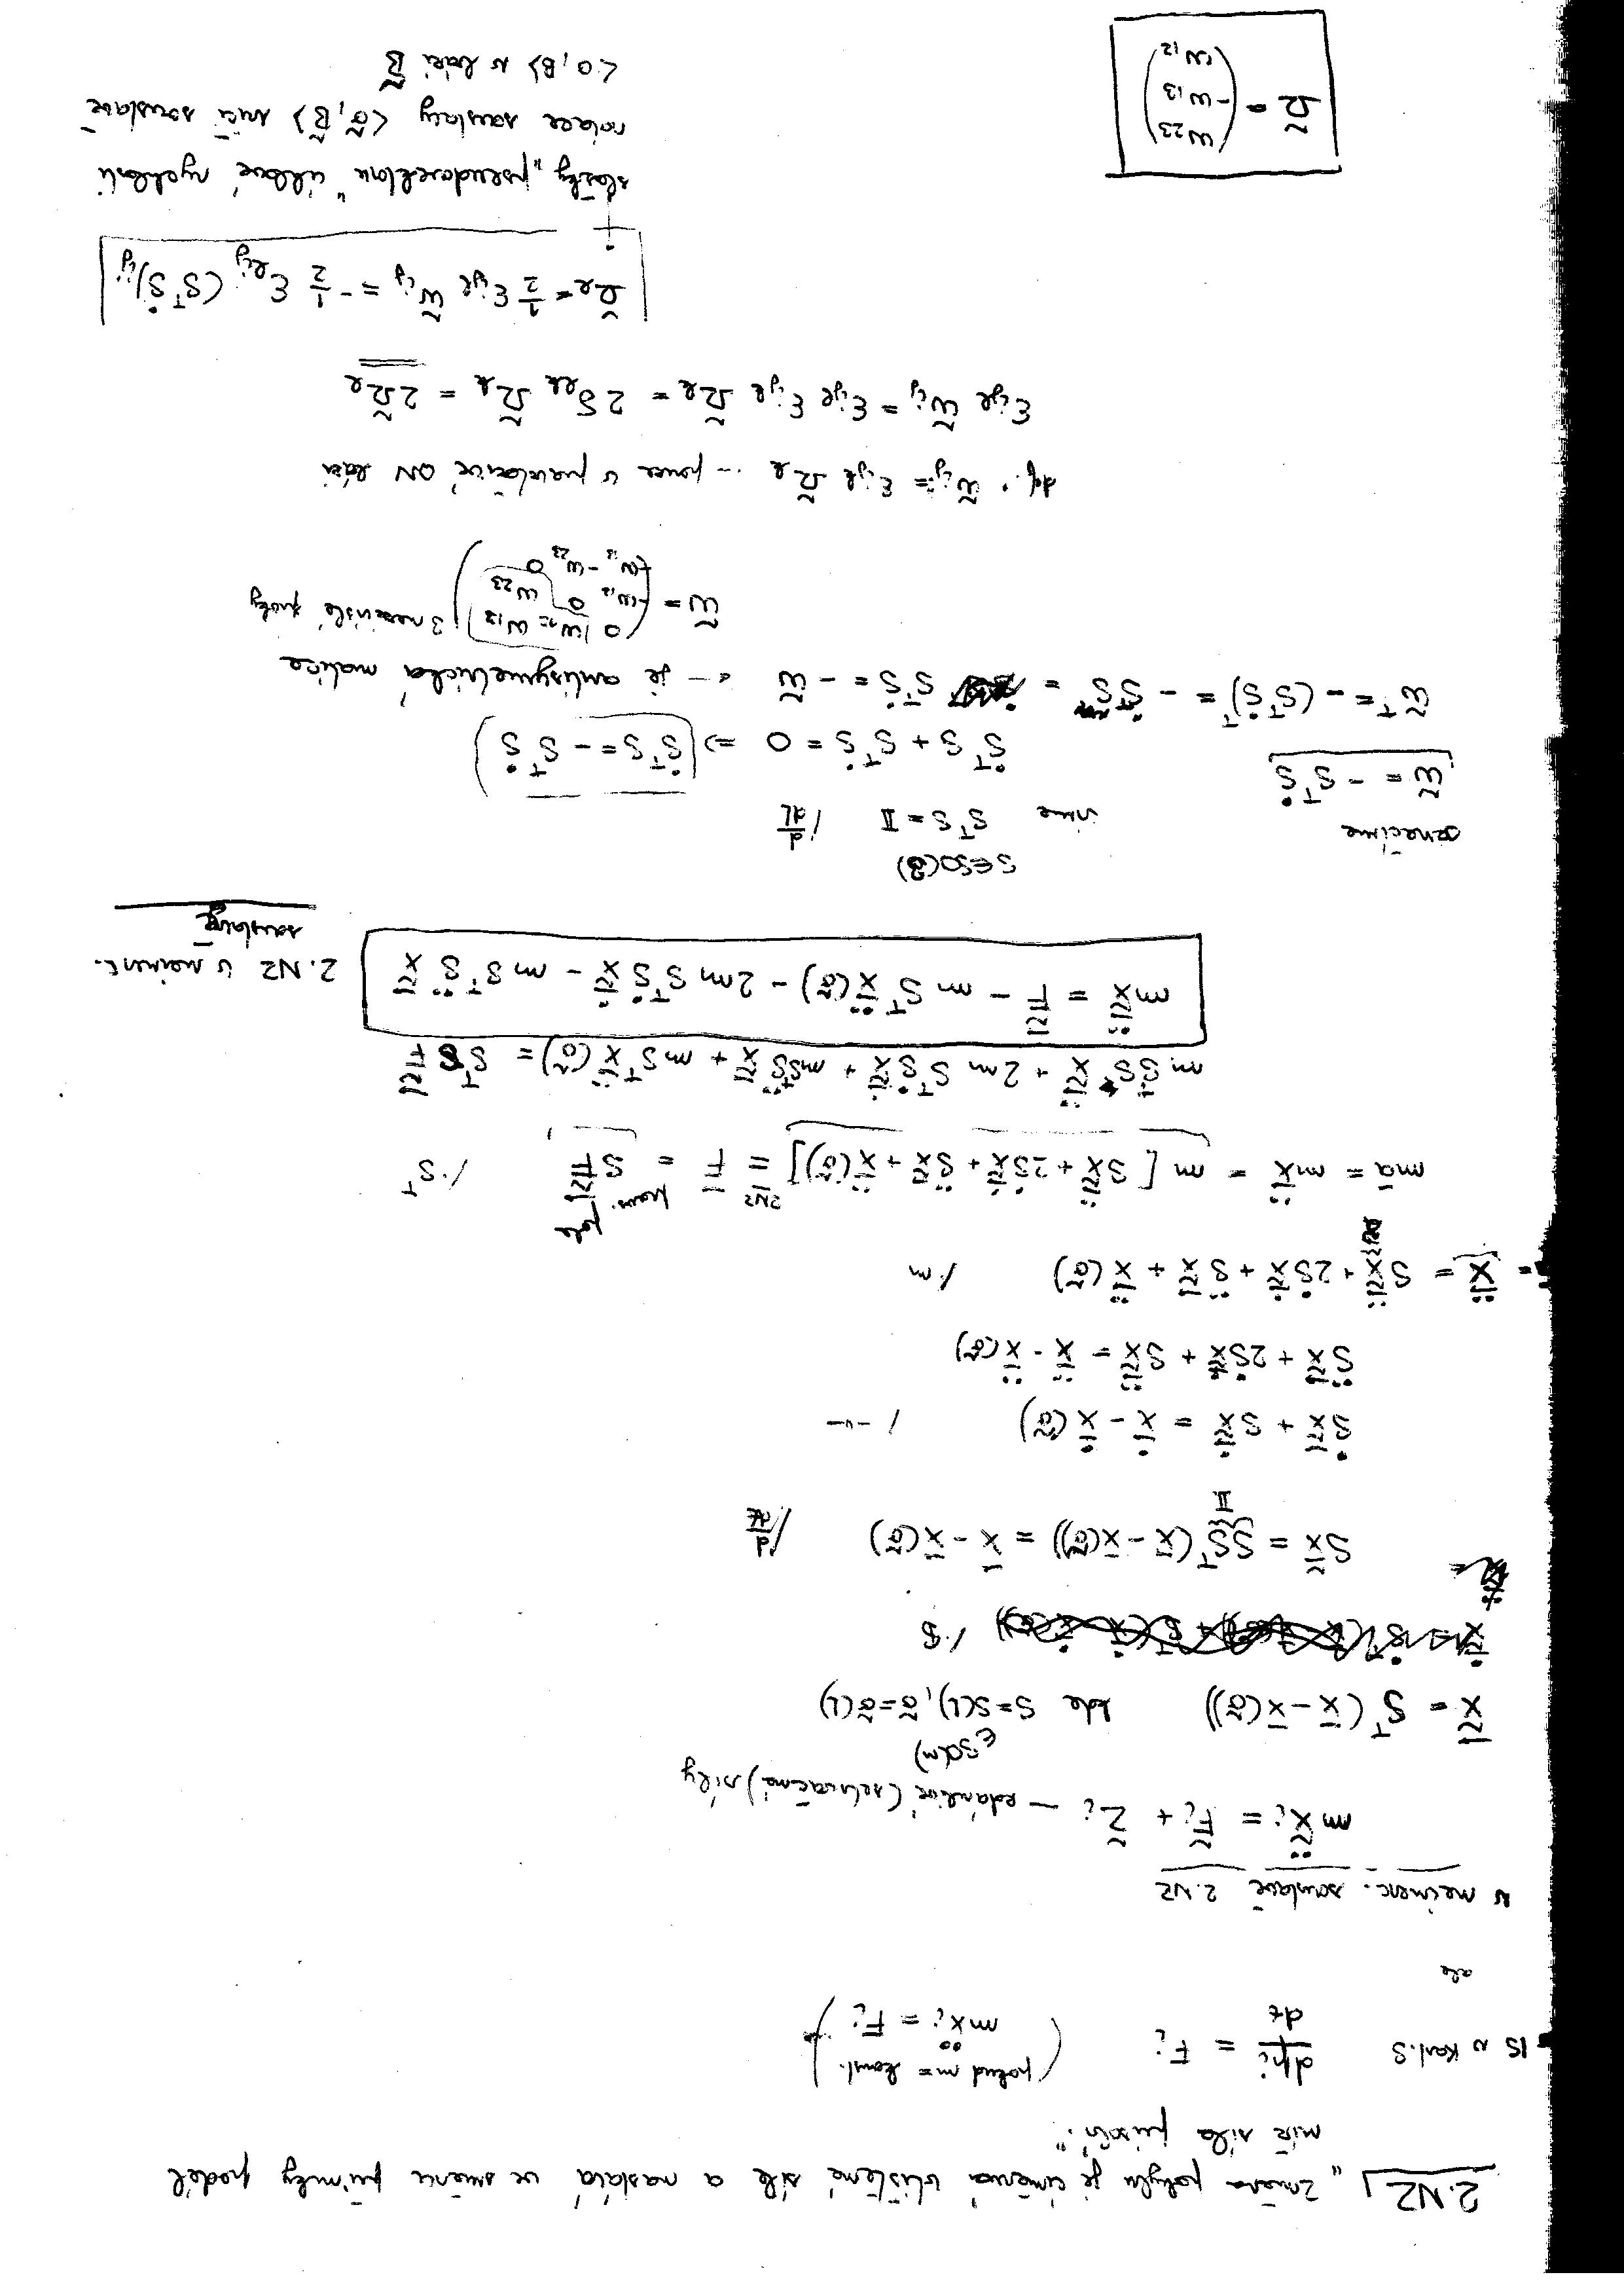 2.NZ „Změna pohybu je úměrná vtištěné síle a nastává ve směru přímky podél
níž síla působí."
IS v kart.S dpᵢ/dt = Fᵢ (pokud m = konst. mẍᵢ = Fᵢ)
ale
v neinerc. soustavě 2.NZ
m\ddot{\tilde{x}}ᵢ = \tilde{F}ᵢ + \tilde{Z}ᵢ — zdánlivé (setrvačné) síly
∈SO(n)
\vec{\tilde{x}} = Sᵀ(\vec{x} - \vec{x}(\tilde{o})) kde S = S(t), \tilde{o} = \tilde{o}(t)
/·S
S\vec{\tilde{x}} = SSᵀ(\vec{x} - \vec{x}(\tilde{o})) = \vec{x} - \vec{x}(\tilde{o}) /d/dt
𝕀
\dot{S}\vec{\tilde{x}} + S\dot{\vec{\tilde{x}}} = \dot{\vec{x}} - \dot{\vec{x}}(\tilde{o}) / -"-
\ddot{S}\vec{\tilde{x}} + 2\dot{S}\dot{\vec{\tilde{x}}} + S\ddot{\vec{\tilde{x}}} = \ddot{\vec{x}} - \ddot{\vec{x}}(\tilde{o})
\ddot{\vec{x}} = S\ddot{\vec{\tilde{x}}} + 2\dot{S}\dot{\vec{\tilde{x}}} + \ddot{S}\vec{\tilde{x}} + \ddot{\vec{x}}(\tilde{o}) /·m
m\vec{a} = m\ddot{\vec{x}} = m[S\ddot{\vec{\tilde{x}}} + 2\dot{S}\dot{\vec{\tilde{x}}} + \ddot{S}\vec{\tilde{x}} + \ddot{\vec{x}}(\tilde{o})] =(2NZ) \vec{F} = S\vec{\tilde{F}} /·Sᵀ
m SᵀS\ddot{\vec{\tilde{x}}} + 2m Sᵀ\dot{S}\dot{\vec{\tilde{x}}} + mSᵀ\ddot{S}\vec{\tilde{x}} + mSᵀ\ddot{\vec{x}}(\tilde{o}) = SᵀS\vec{\tilde{F}}
m\ddot{\vec{\tilde{x}}} = \vec{\tilde{F}} - m Sᵀ\ddot{\vec{x}}(\tilde{o}) - 2m Sᵀ\dot{S}\dot{\vec{\tilde{x}}} - m Sᵀ\ddot{S}\vec{\tilde{x}} 2.NZ v neinerc. soustavě
S∈SO(3)
označíme víme SᵀS = 𝕀 /d/dt
\tilde{ω} = -Sᵀ\dot{S} \dot{S}ᵀS + Sᵀ\dot{S} = 0 ⇒ \dot{S}ᵀS = -Sᵀ\dot{S}
\tilde{ω}ᵀ = -(Sᵀ\dot{S})ᵀ = -\dot{S}ᵀS = Sᵀ\dot{S} = -\tilde{ω} ← je antisymetrická matice
\tilde{ω} = (0 ω₁₂ ω₁₃ / -ω₁₂ 0 ω₂₃ / -ω₁₃ -ω₂₃ 0) 3 nezávislé prvky
def. \tilde{ω}ᵢⱼ = εᵢⱼₖ \tilde{Ω}ₖ … pouze v pravotočivé ON bázi
εᵢⱼₗ \tilde{ω}ᵢⱼ = εᵢⱼₗ εᵢⱼₖ \tilde{Ω}ₖ = 2δₗₖ \tilde{Ω}ₖ = 2\tilde{Ω}ₗ
\tilde{Ω}ₖ = 1/2 εᵢⱼₖ \tilde{ω}ᵢⱼ = -1/2 εₖᵢⱼ (Sᵀ\dot{S})ᵢⱼ
složky „pseudovektoru" úhlové rychlosti
rotace soustavy <\tilde{o},\tilde{B}> vůči soustavě
<o,B> v bázi \tilde{B}
\tilde{Ω} = (ω₂₃ / -ω₁₃ / ω₁₂)